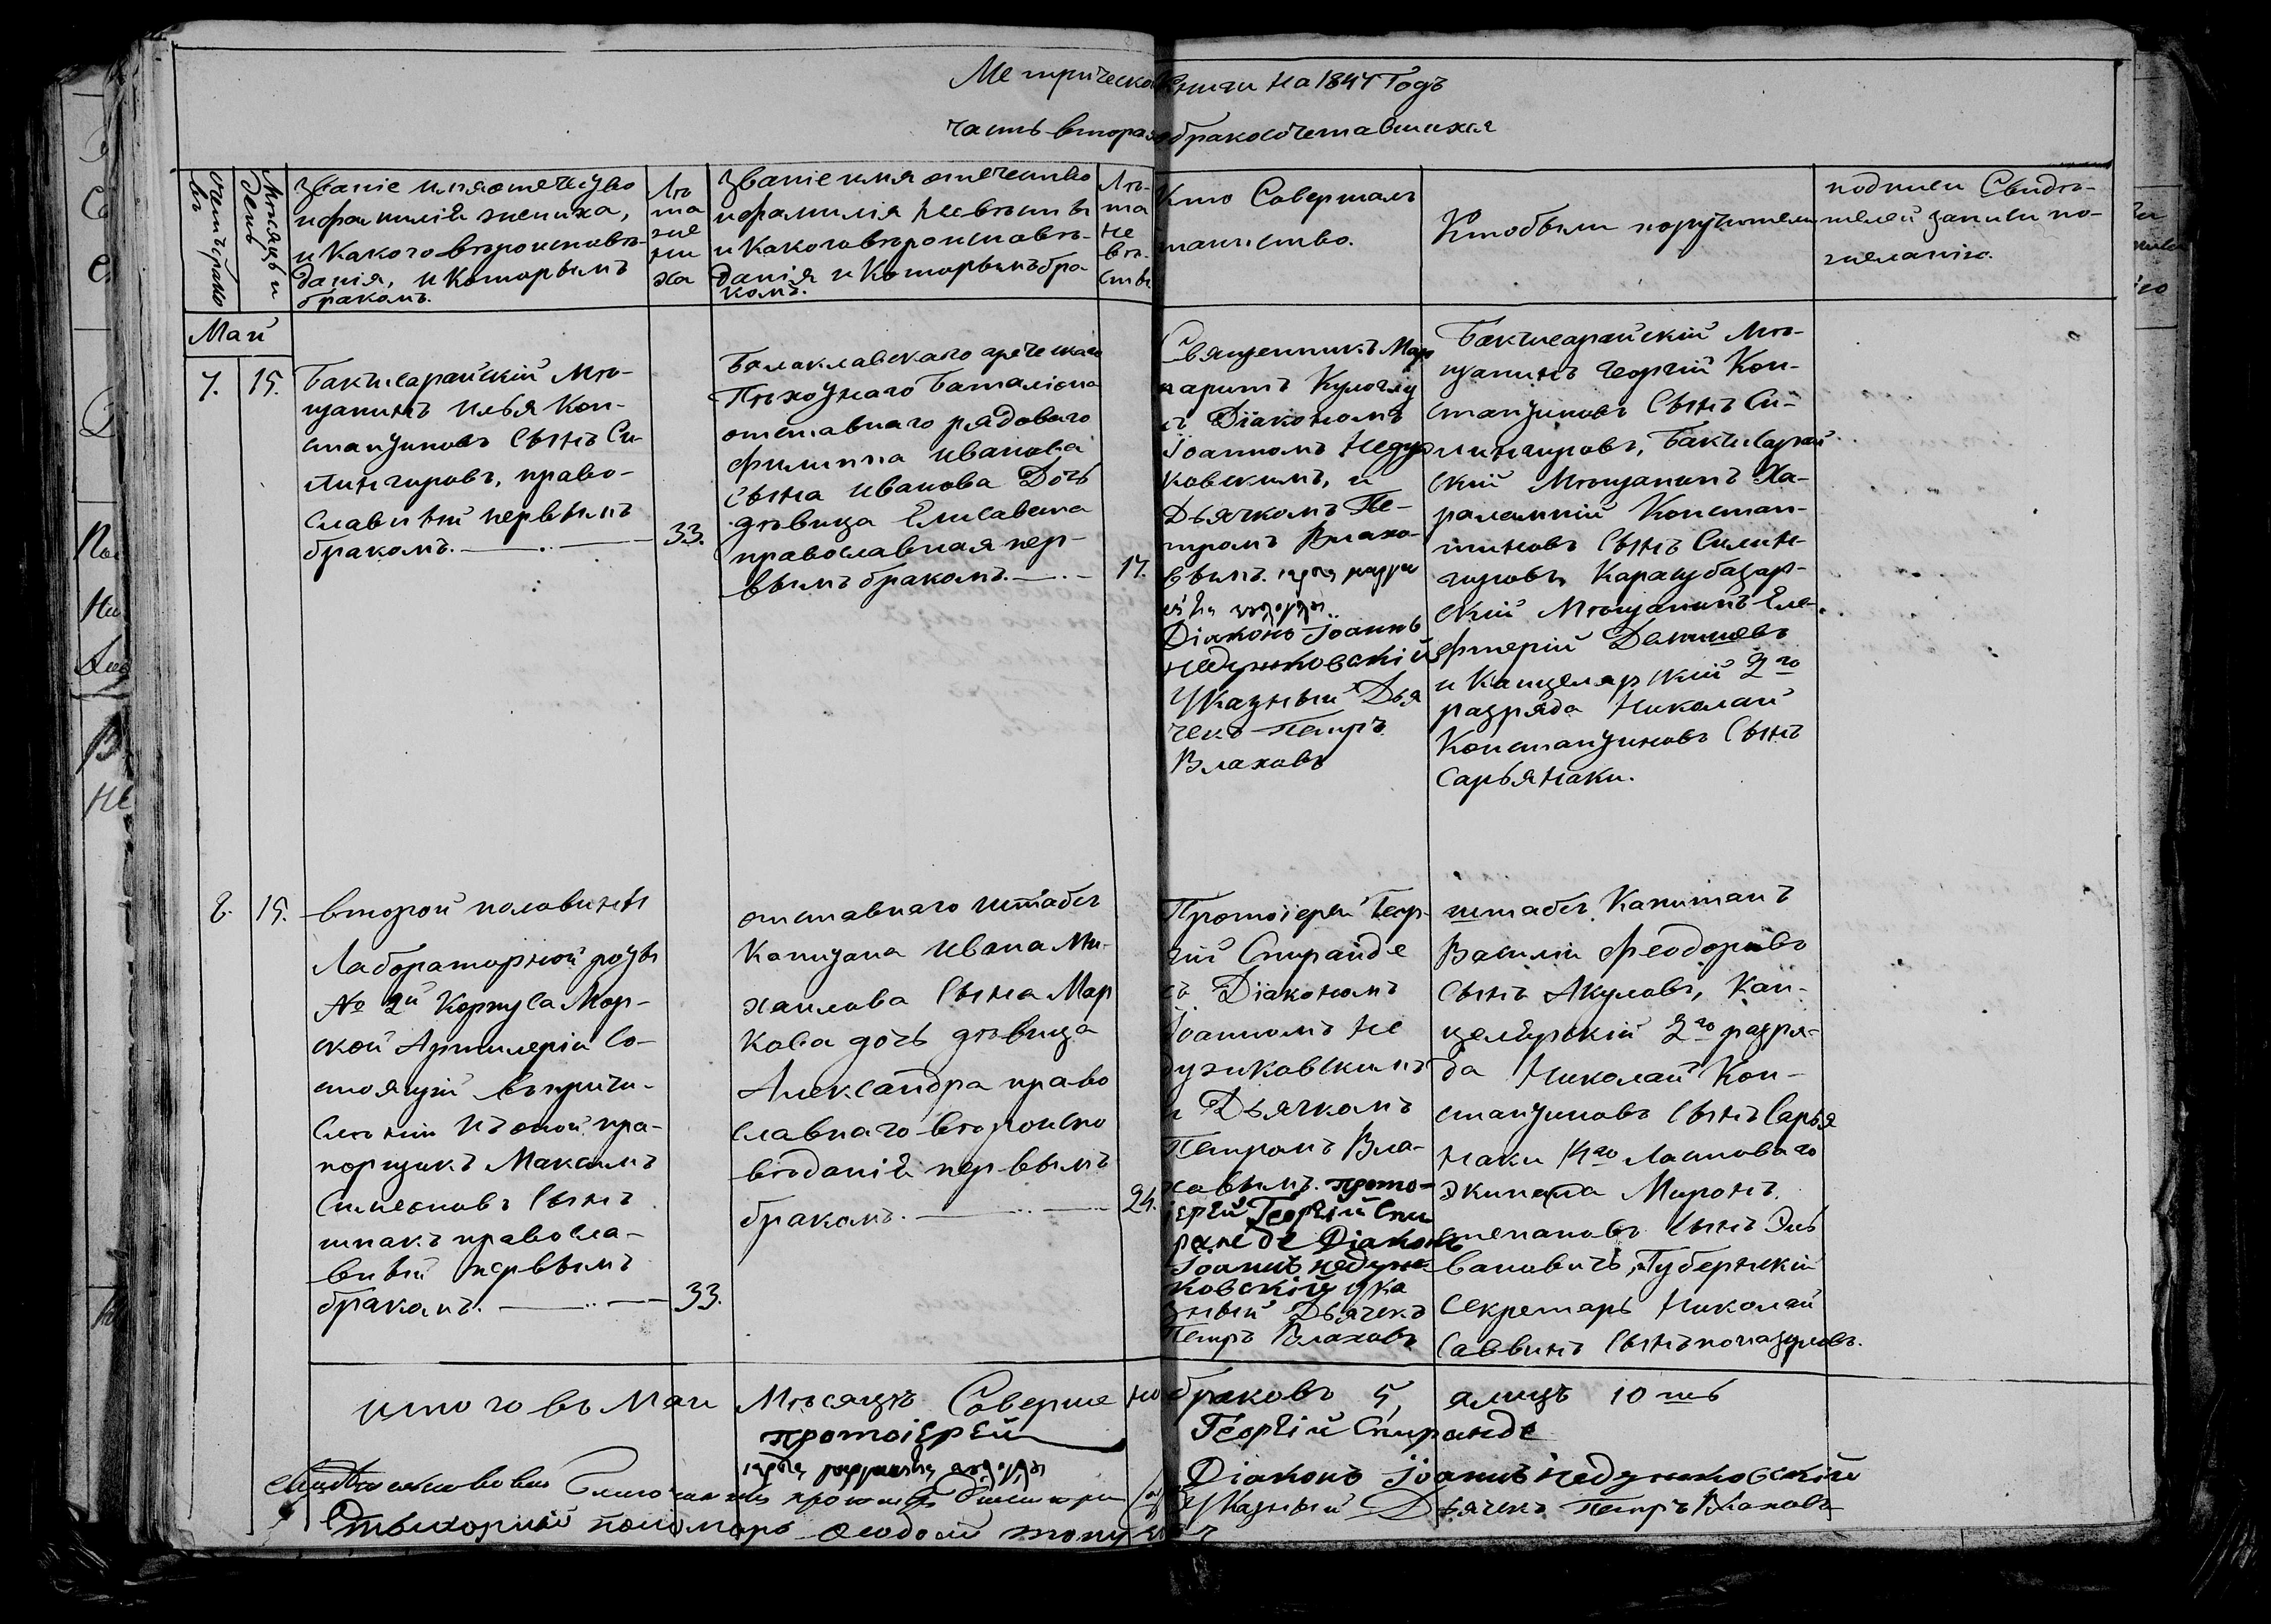 Метрической Книги на 1847 Годъ
часть вторая о бракосочетавшихся
Счетъ брако
въ
Мѣсяцъ и
день
Званіе имя отечество
и фамилія жениха,
и Какого вѣроисповѣ-
данія, и Которымъ
бракомъ.
Лѣ
та
же
ни
ха
Званіе имя отечество
и фамилія невѣсты
и Какого вѣроисповѣ-
данія и Которымъ бра
комъ.
Лѣ-
та
не
вѣ-
сты
Кто Совершалъ
таинство.
Кто были поручители
подписи Свидѣ-
телей записи по-
желанію.
Май
7. 15.
Бакчисарайскій Мѣ-
щанинъ Илья Кон-
стантиновъ Сынъ Си-
линчировъ, право-
славный первымъ
бракомъ. 33.
Балаклавскаго греческаго
Пѣхотнаго Баталіона
отставнаго рядоваго
Филиппа Иванова
Сына Иванова Дочь
дѣвица Елисавета
православная пер-
вымъ бракомъ. 17.
Священникъ Мар
гаритъ Кулоглу
съ Діакономъ
Іоанномъ Недзя
ковскимъ, и
Дьячкомъ Пе-
тромъ Влахо-
вымъ.
Діаконъ Іоаннъ
Недзяковскій
Указный Дья
чекъ Петръ
Влаховъ
Бакчисарайскій Мѣ-
щанинъ Георгій Кон-
стантиновъ Сынъ Си-
линчировъ, Бакчисарай
скій Мѣщанинъ Ха-
ралампій Констан-
тиновъ Сынъ Силин-
чировъ Карасубазар-
скій Мѣщанинъ Еле-
фтерій
и Канцелярскій 2го
разряда Николай
Константиновъ Сынъ
Сарьянаки.
8. 15.
второй половинны
Лабораторной роты
№ 2й Корпуса Мор-
ской Артилеріи Со-
стоящій въ причи-
сленіи къ оной пра-
порщикъ Максимъ
Симеоновъ Сынъ
шпакъ правосла-
вный первымъ
бракомъ. 33.
отставнаго штабсъ
Капитана Ивана Ми-
хаилова Сына Мар
кова дочь дѣвица
Александра право
славнаго вѣроиспо
вѣданія первымъ
бракомъ. 24.
Протоіерей Геор-
гій Спиранде
съ Діакономъ
Іоанномъ Не
дзяковскимъ
и Дьячкомъ
Петромъ Вла-
ховымъ. прото-
іерей Георгій Спи
ранде Діаконъ
Іоаннъ Недзя-
ковскій ука
зный Дьячекъ
Петръ Влаховъ
штабсъ Капитанъ
Василій Феодоровъ
Сынъ Акуловъ, Кан-
целярскій 2го разря-
да Николай Кон-
стантиновъ Сынъ Сарья
наки 14го Ластоваго
экипажа Миронъ
степановъ Сынъ Эль
вановичъ, Губернскій
Секретарь Николай
Саввинъ Сынъ
итого въ Маи Мѣсяцѣ Совершено браковъ 5, а лицъ 10ть
протоіерей Георгій Спиранде
Діаконъ Іоаннъ Недзяковскій
Указный Дьячекъ Петръ Влаховъ
пономарь